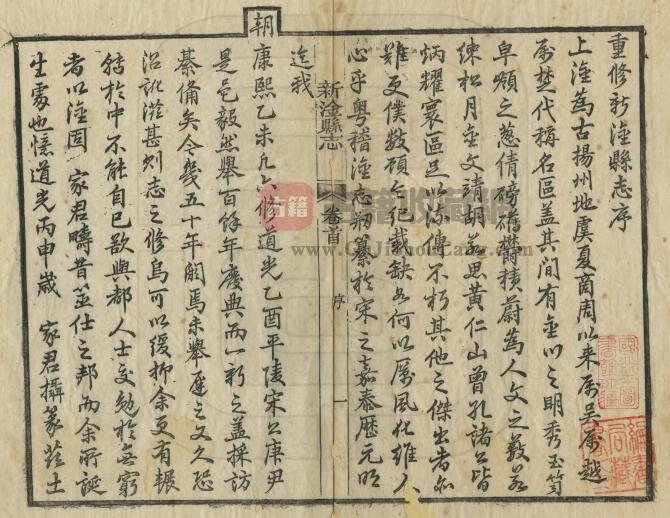 重修新淦縣志序
上淦為古揚州地虞夏商周以来屬吳屬越
屬楚代稱名區盖其間有金川之明秀玉笥
皁之葱倩磅礴欝積蔚為人文之薮若
練松月金文靖胡若思黄仁山曾孔諸公皆
炳耀寰區足以傳不朽其他之傑出者亦
難更僕数顧令記載缺如何以厲風化維人
心乎粤稽淦志剏纂於宋之嘉泰歷元明
迄我
新淦縣志
卷首
序
一
朝
康熙乙未凡六修道光乙酉平陵宋公庚尹
是邑毅然舉百餘年廢典而一新之盖採訪
綦備矣今幾五十年闕焉未舉歷之又久恐
沿訛滋甚則志之修烏可以緩抑余更有輾
轉於中不能自已欲與都人士交勉於無窮
者以淦固 家君疇昔筮仕之邦而余所誕
生處也憶道光丙申歲 家君攝篆茲土
古籍收藏網
www.GuJiShouCang.com